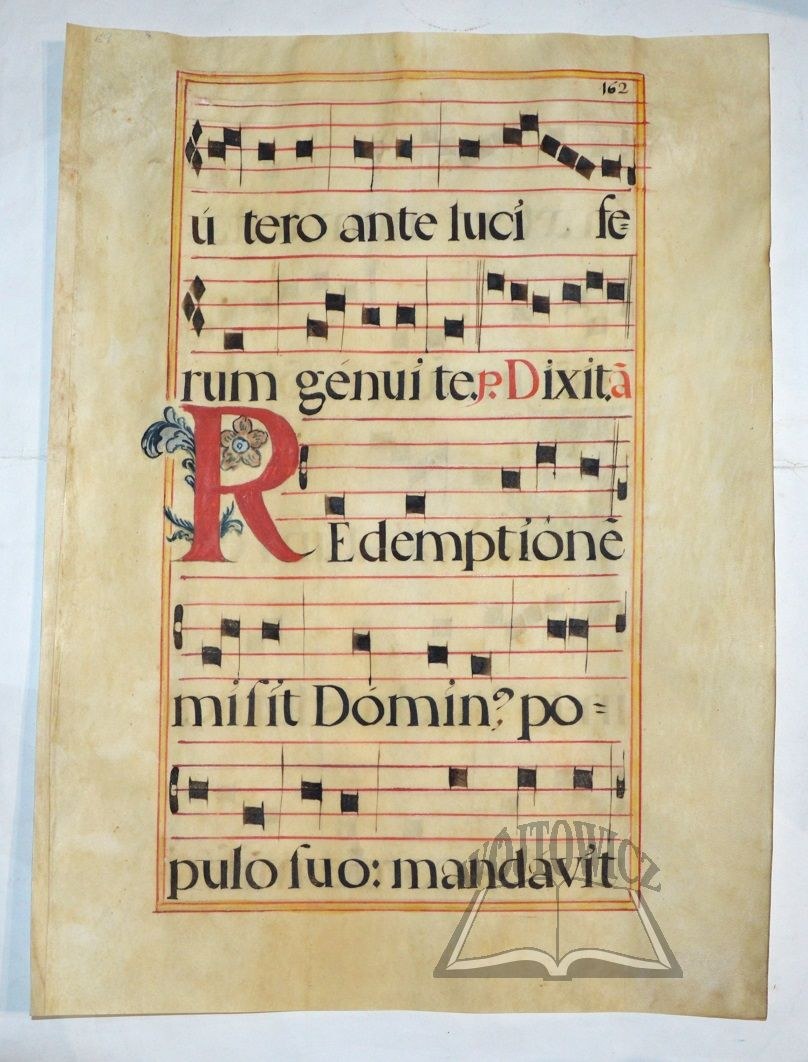 162
ú tero ante luci fe=
rum génui te. ps. Dixit. ā
REdemptionē
misit Dómin9 po=
pulo suo: mandavit
WÓJTOWICZ